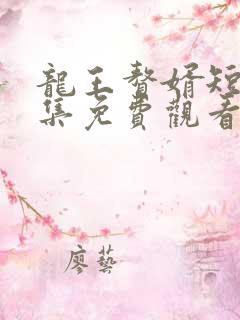 龍王贅婿短
集免費觀看
廖藝